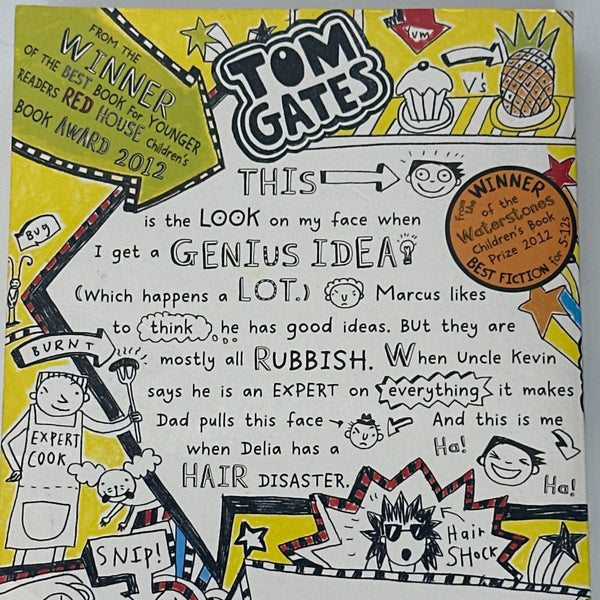 FROM THE
WINNER
OF THE BEST BOOK FOR YOUNGER
READERS RED HOUSE Children's
BOOK AWARD 2012
TOM
GATES
Yum
V's
THIS
is the LOOK on my face when
I get a GENIUS IDEA
(Which happens a LOT.) Marcus likes
to think he has good ideas. BUT they are
mostly all RUBBISH. When Uncle Kevin
says he is an EXPERT on everything it makes
Dad pulls this face And this is me
when Delia has a
HAIR DISASTER.
From the WINNER
of the
Waterstones
Children's Book
Prize 2012
BEST FICTION for 5-12s
Bug
BURNT
EXPERT
COOK
SNIP!
Ha!
Ha!
Hair
SHOCK